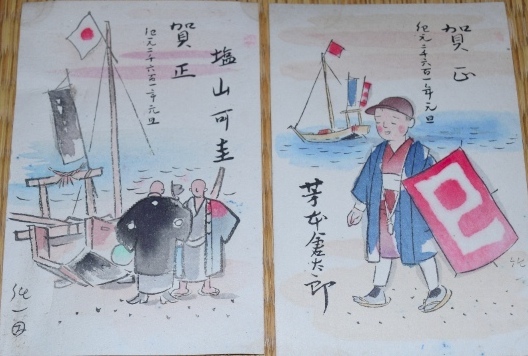 賀正
紀元二千六百一年元旦
塩山可圭
賀正
紀元二千六百一年元旦
芳本倉太郎
巳